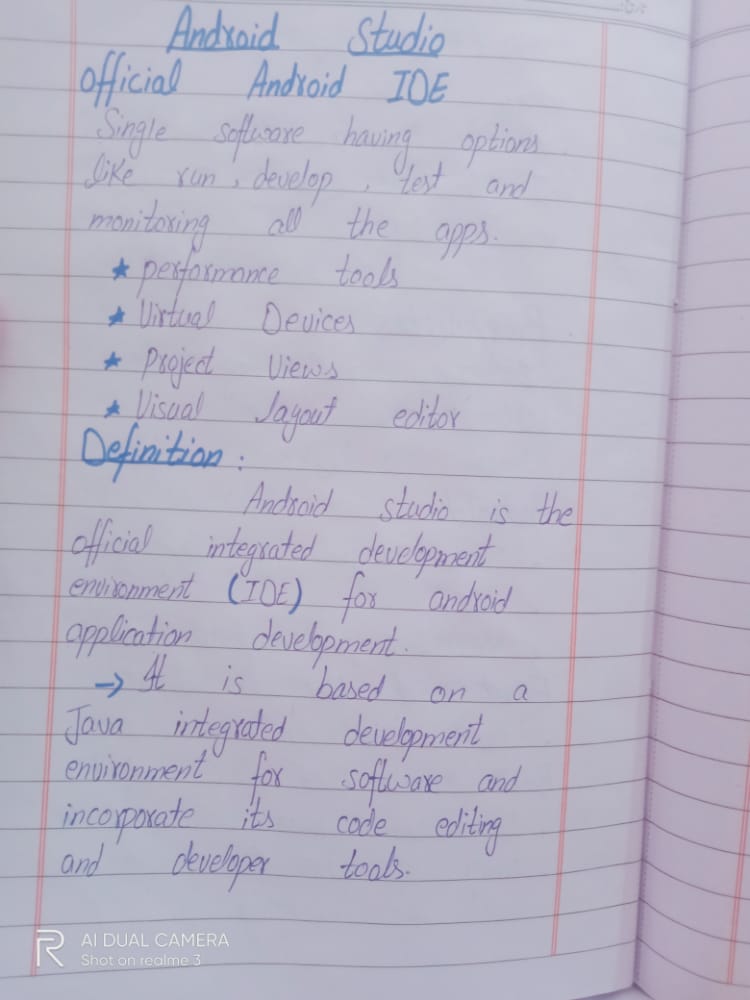 Android Studio
official Android IDE
Single software having options
like run, develop, test and
monitoring all the apps.
★ performance tools
★ Virtual Devices
★ Project Views
★ Visual layout editor
Definition:
Android studio is the
official integrated development
environment (IDE) for android
application development.
→ It is based on a
Java integrated development
environment for software and
incorporate its code editing
and developer tools.
R AI DUAL CAMERA
Shot on realme 3